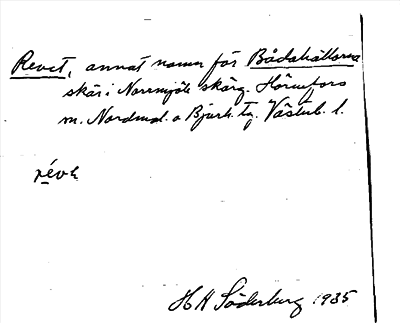 Revet, annat namn för Bådahällorna
skär i Norrmjöle skärg. Hörnefors
sn. Nordmal. o Bjurh. tg. Västerb. l.
révɛ
H H Söderberg 1935